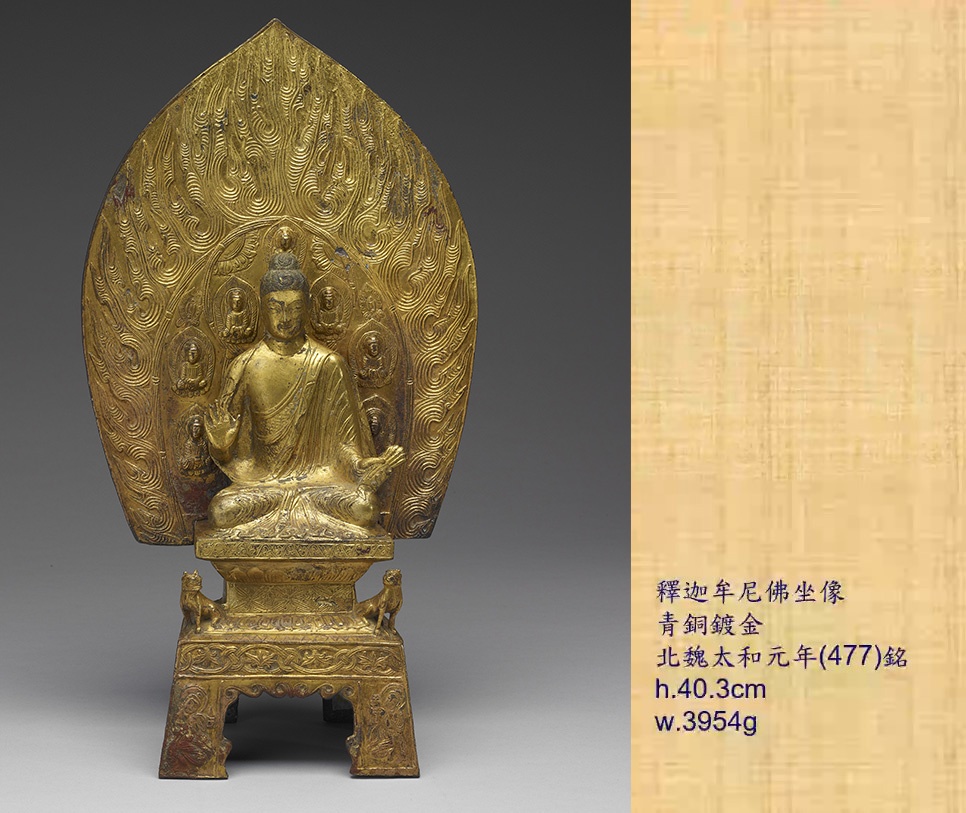 釋迦牟尼佛坐像
青銅鍍金
北魏太和元年(477)銘
h.40.3cm
w.3954g